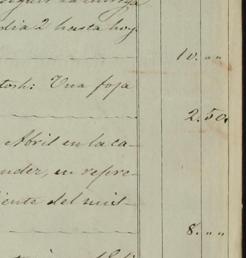 dia 2 hasta hoy.
10. „„
tosh: Una foja
2.50.
Abril en la ca-
nder, en repre-
iente del mist-
8. „„